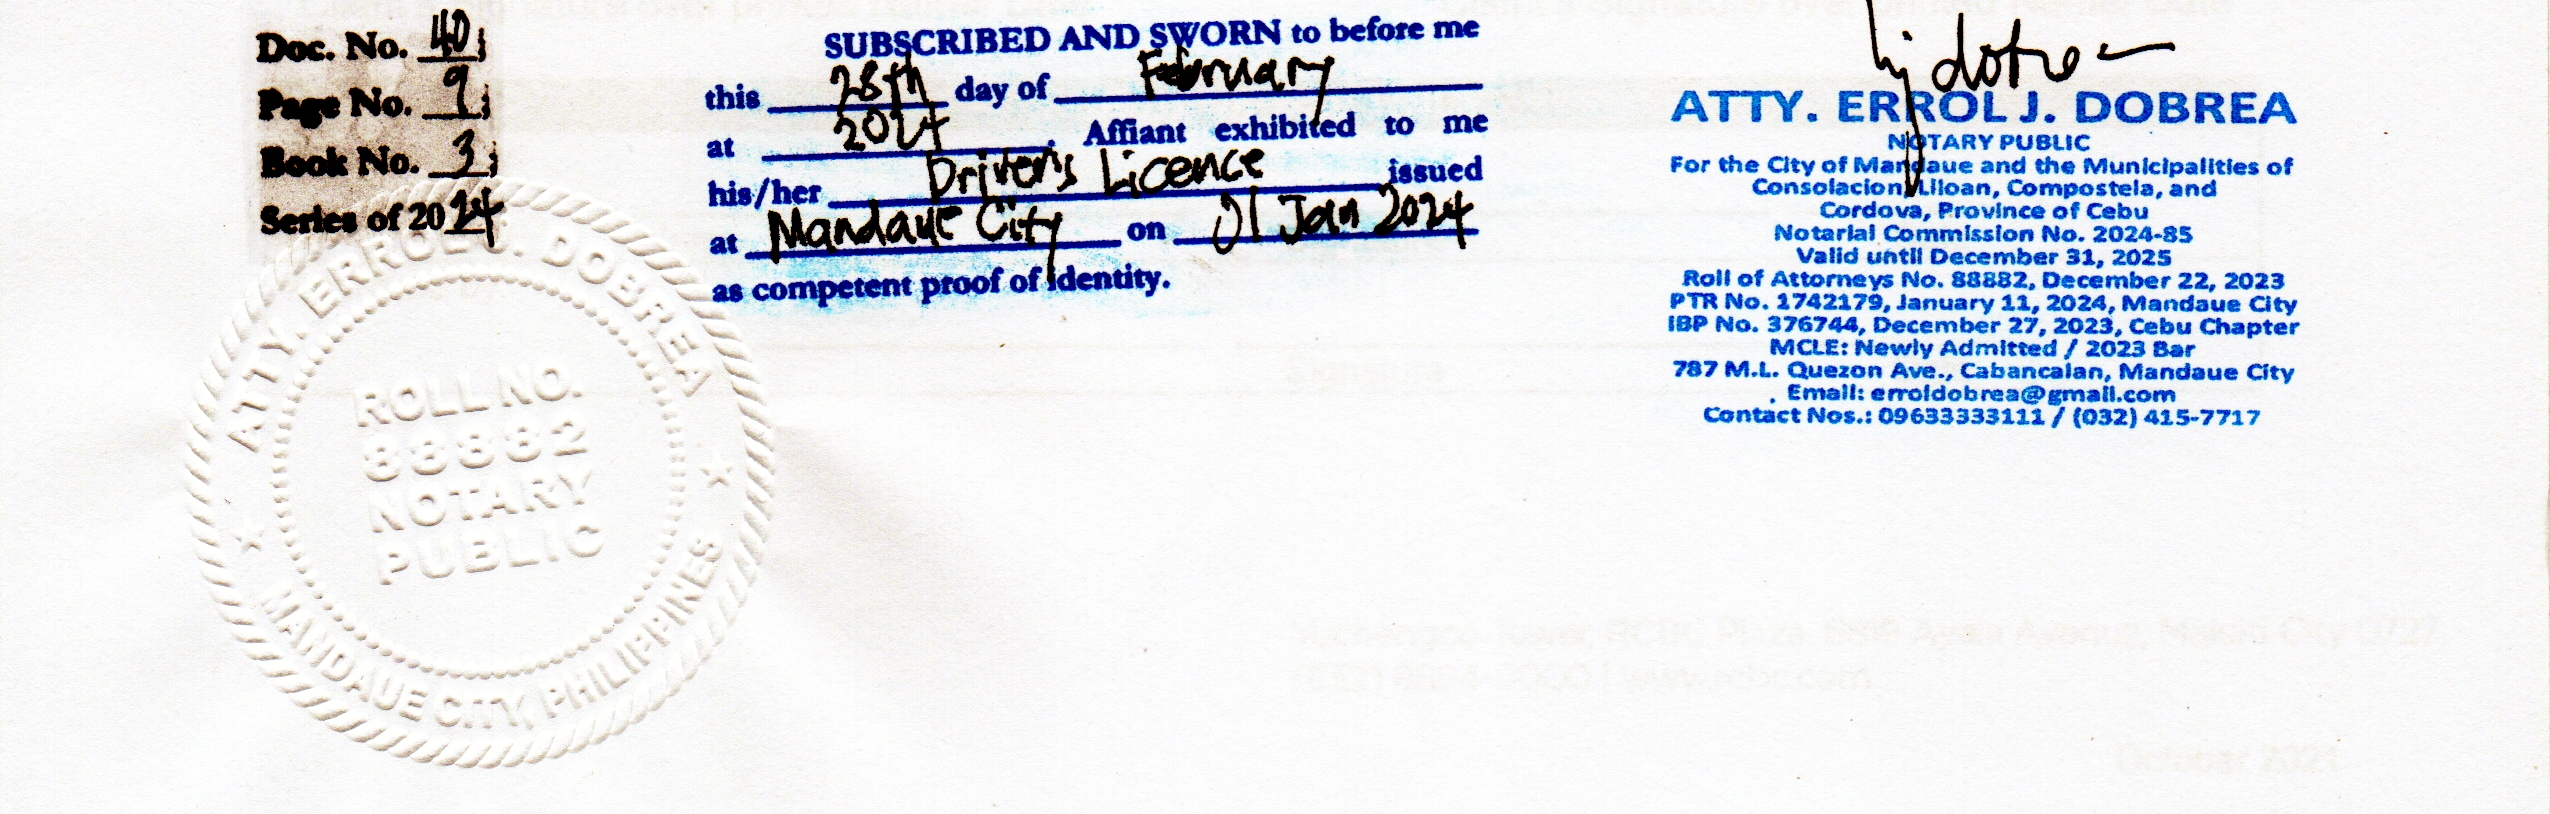 Doc. No. 40;
Page No. 9;
Book No. 3;
Series of 2024
SUBSCRIBED AND SWORN to before me
this 28th day of February
at 2024. Affiant exhibited to me
his/her Driver's Licence issued
at Mandaue City on 01 Jan 2024
as competent proof of identity.
ATTY. ERROL J. DOBREA
NOTARY PUBLIC
For the City of Mandaue and the Municipalities of
Consolacion, Liloan, Compostela, and
Cordova, Province of Cebu
Notarial Commission No. 2024-85
Valid until December 31, 2025
Roll of Attorneys No. 88882, December 22, 2023
PTR No. 1742179, January 11, 2024, Mandaue City
IBP No. 376744, December 27, 2023, Cebu Chapter
MCLE: Newly Admitted / 2023 Bar
787 M.L. Quezon Ave., Cabancalan, Mandaue City
Email: erroldobrea@gmail.com
Contact Nos.: 09633333111 / (032) 415-7717
ATTY. ERROL J. DOBREA
ROLL NO.
88882
NOTARY
PUBLIC
MANDAUE CITY, PHILIPPINES
October 2021